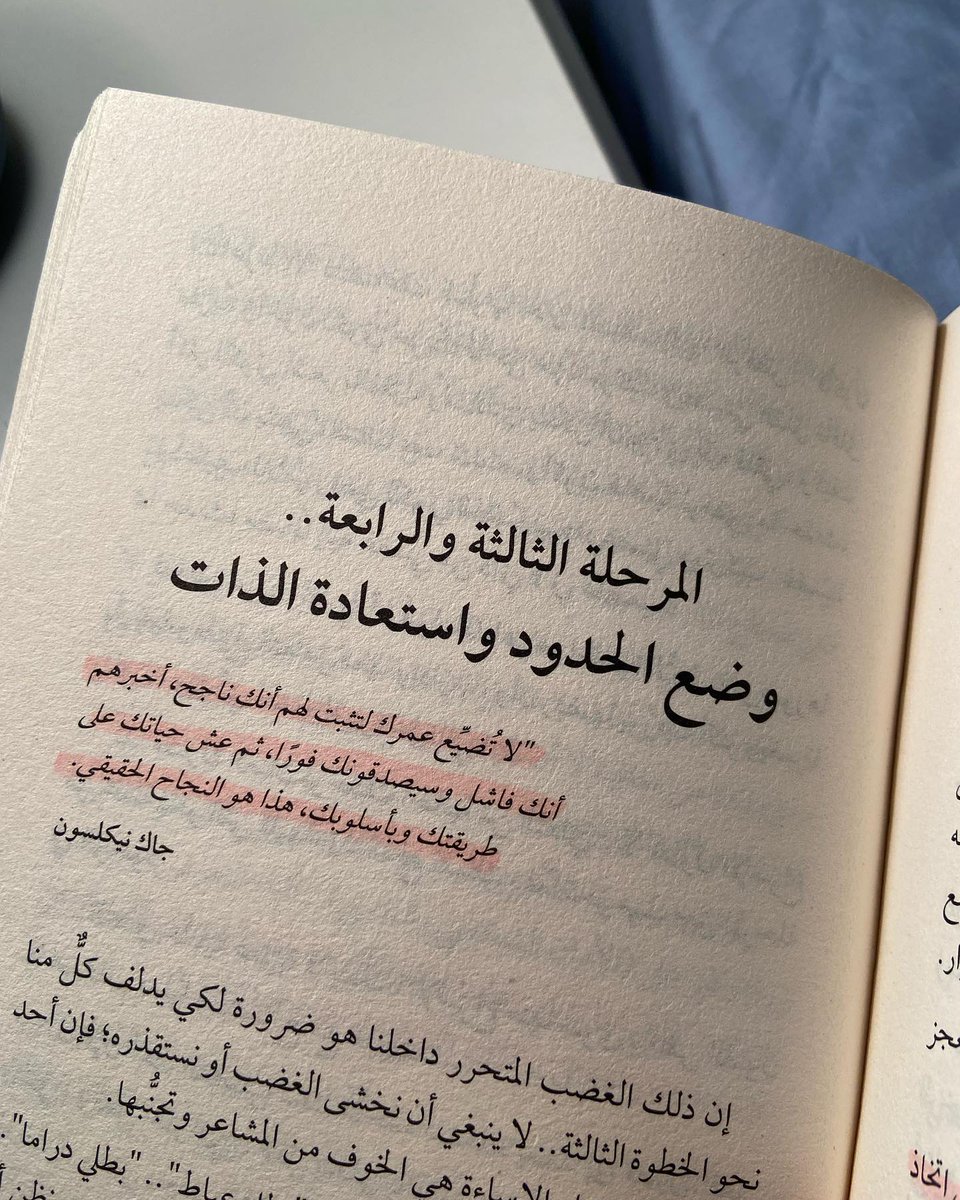 المرحلة الثالثة والرابعة..
وضع الحدود واستعادة الذات
"لا تُضيِّع عمرك لتثبت لهم أنك ناجح، أخبرهم
أنك فاشل وسيصدقونك فورًا، ثم عش حياتك على
طريقتك وبأسلوبك، هذا هو النجاح الحقيقي.
جاك نيكلسون
إن ذلك الغضب المتحرر داخلنا هو ضرورة لكي يدلف كلٌّ منا
نحو الخطوة الثالثة.. لا ينبغي أن نخشى الغضب أو نستقذره؛ فإن أحد
الإساءة هي الخوف من المشاعر وتجنُّبها.
عياط".. "بطلي دراما".
اتخاذ